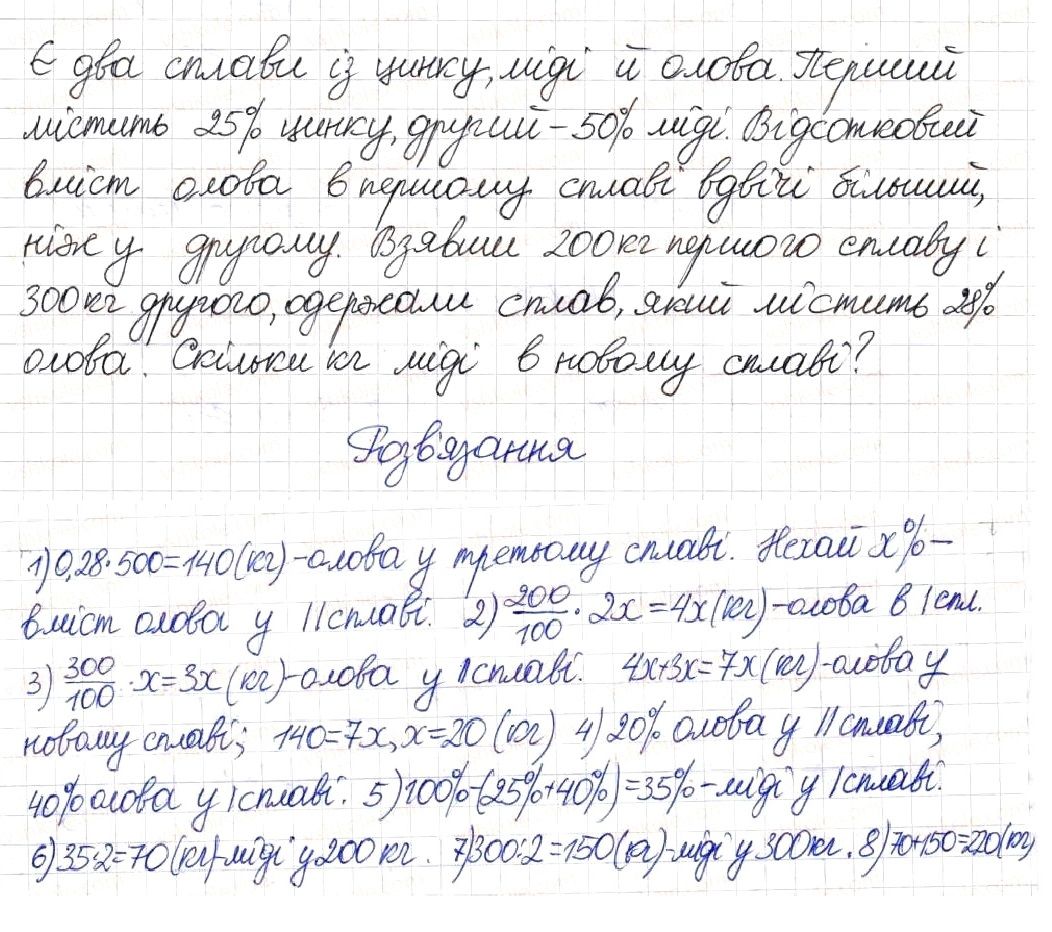 Є два сплави із цинку, міді й олова. Перший
містить 25% цинку, другий – 50% міді. Відсотковий
вміст олова в першому сплаві вдвічі більший,
ніж у другому. Взявши 200 кг першого сплаву і
300 кг другого, одержали сплав, який містить 28%
олова. Скільки кг міді в новому сплаві?
Розв'язання
1) 0,28·500=140(кг)-олова у третьому сплаві. Нехай x%–
вміст олова у II сплаві. 2) 200/100 · 2x = 4x (кг)-олова в I спл.
3) 300/100 · x = 3x (кг)-олова у II сплаві. 4x+3x=7x(кг)-олова у
новому сплаві; 140=7x, x=20 (кг) 4) 20% олова у II сплаві,
40% олова у I сплаві. 5) 100%-(25%+40%)=35%-міді у I сплаві.
6) 35·2=70 (кг)-міді у 200 кг. 7) 300:2=150(кг)-міді у 300 кг. 8) 70+150=220(кг)